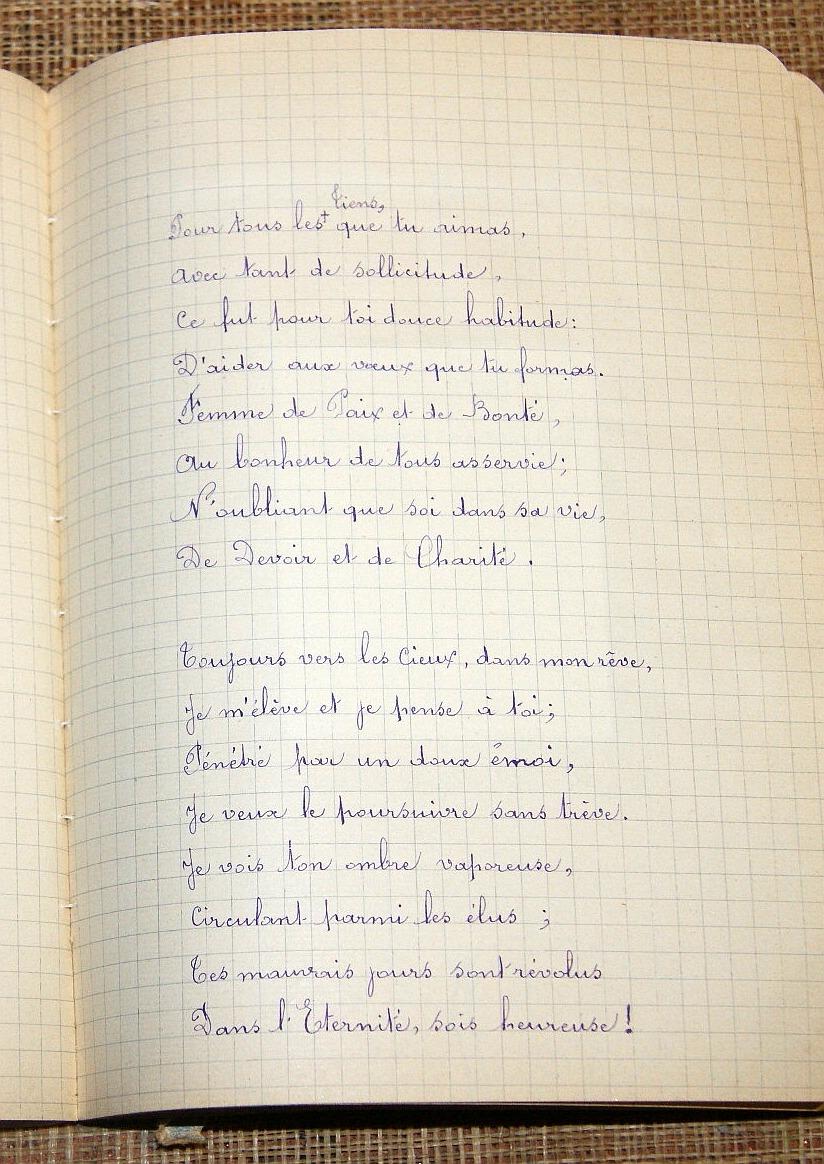 Tiens,
Pour tous les + que tu aimas,
avec tant de sollicitude,
Ce fut pour toi douce habitude :
D'aider aux vœux que tu formas.
Femme de Paix et de Bonté,
au bonheur de tous asservie ;
N'oubliant que soi dans sa vie,
De Devoir et de Charité.
Toujours vers les Cieux, dans mon rêve,
Je m'élève et je pense à toi ;
Pénétré par un doux émoi,
Je veux le poursuivre sans trève.
Je vois ton ombre vaporeuse,
Circulant parmi les élus ;
Tes mauvais jours sont révolus
Dans l'Eternité, sois heureuse !